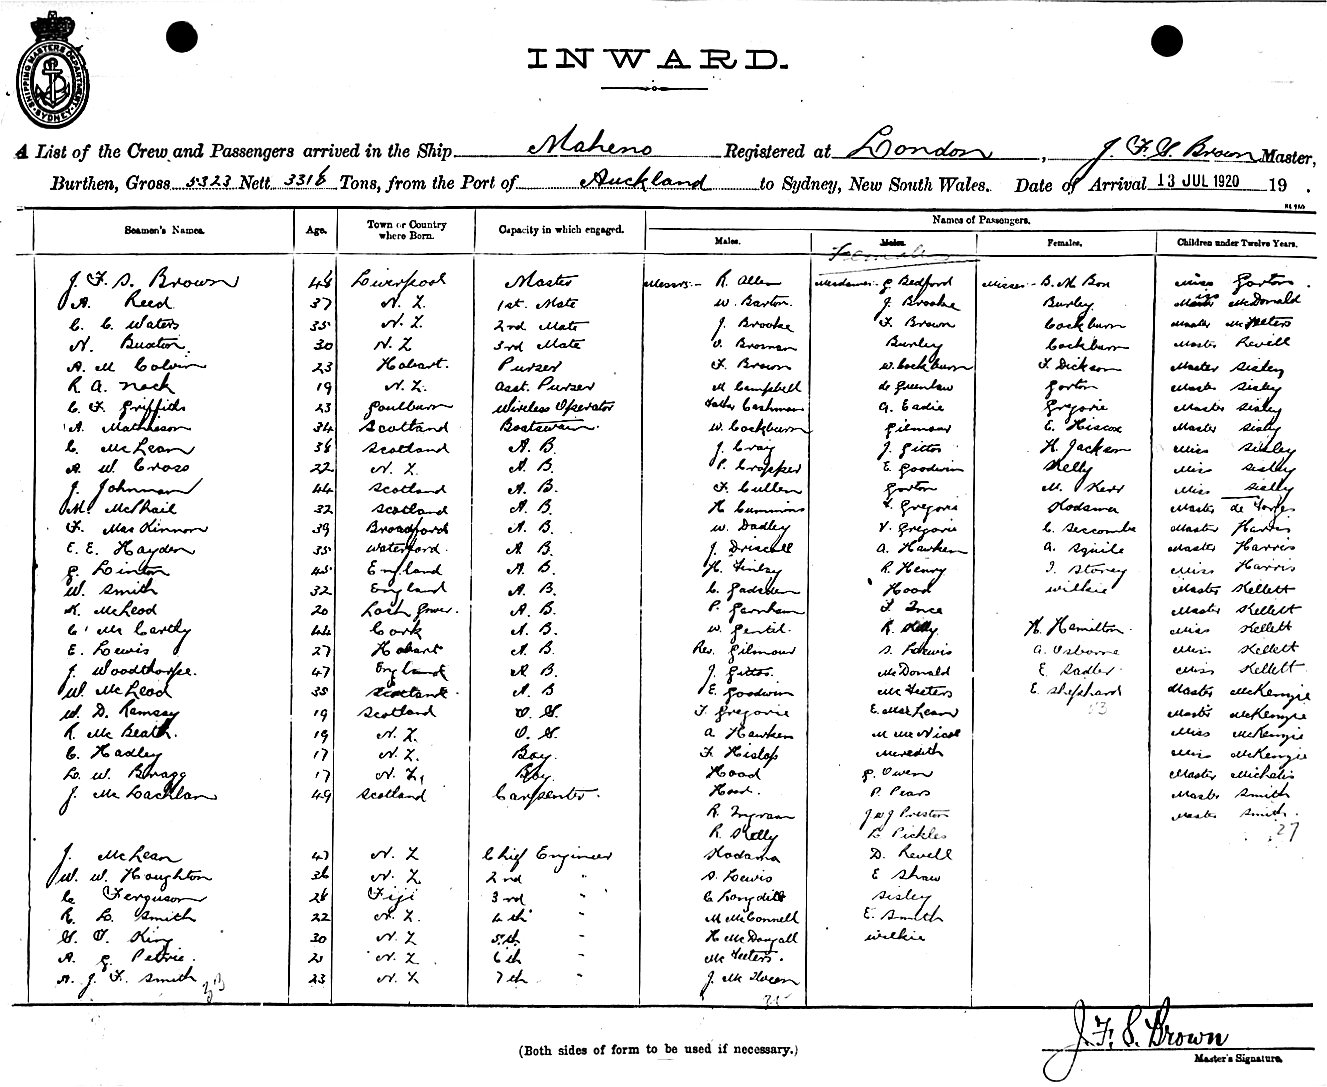 SHIPPING MASTERS DEPARTMENT SYDNEY
INWARD.
A List of the Crew and Passengers arrived in the Ship Maheno Registered at London, J. F. S. Brown Master,
Burthen, Gross 5323 Nett 3318 Tons, from the Port of Auckland to Sydney, New South Wales. Date of Arrival 13 JUL 1920 19 .
Seamen's Names. Age. Town or Country where Born. Capacity in which engaged. Names of Passengers.
Males. Males. Females Females. Children under Twelve Years.
J. F. S. Brown 48 Liverpool Master Messrs- R. Allen Mesdames- G Bedford Misses- B. M Box Miss Gorton
A. Reed 37 N. Z. 1st. Mate W. Barton. J. Brooke Burley McDonald
C. C. Waters 35 N. Z. 2nd Mate J. Brooke F. Brown Cockburn Master McFeeters
N. Buxton 30 N. Z 3rd Mate Broman Burley Cockburn Master Revell
A. M Colvin 23 Hobart. Purser F. Brown W. Cockburn F. Dickson Master Sisley
R A. Nock 19 N. Z. Asst. Purser M Campbell de Guenlaw Gorton Master Sisley
C. F Griffiths 23 Goulburn Wireless Operator Father Cashman A. Eadie Gregorie Master Sisley
A. Matheson 34 Scotland Boatswain. W. Cockburn Gilmour E. Hiscox Master Sisley
C. McLean 38 Scotland A. B. J. Craig J. Gittos H. Jackson Miss Sisley
A. W. Cross 22 N. Z. A. B. P. Cropper E. Goodwin Kelly Miss Sisley
J. Johnman 44 Scotland A. B. F. Cullen Gorton M. Kerr Miss Sisley
M. McPhail 32 Scotland A. B. H Cummins F. Gregorie Kodama Master de
F. MacKinnon 39 Broadford A. B W. Dadley V. Gregorie C. Seccombe Master Harris
E. E. Hayden 35 Waterford. A. B J. Driscoll A. Hawken A. Squile Master Harris
G. Linton 45 England A. B. H. Finlay R. Henry I. Storey Miss Harris
W. Smith 32 England A. B. C. Gadsden Hood Wilkie Master Kellett
K. McLeod 20 A. B. P. Garnham F. Ince Master Kellett
C. McCarthy 44 Cork A. B. W. Gentil. R. Kelly H. Hamilton. Miss Kellett
E. Lewis 27 Hobart A. B. Rev. Gilmour S. Lewis A. Osborne Miss Kellett
J. Woodthorpe. 47 England A B. J. Gittos. McDonald E. Sadler Miss Kellett
W. McLeod 35 Scotland. A. B E. Goodwin McFeeters E. Shephard Master McKenzie
W. D. Ramsay 19 Scotland O. S. F. Gregorie E. MacLean 13 Master McKenzie
R. McBeath. 19 N. Z. O. S. A Hawken M McNicol Miss McKenzie
C. Hadley 17 N. Z. Boy. F. Hislop Meredith Miss McKenzie
L. W. Bragg 17 N. Z. Boy. Hood G. Owen Master Michalis
J. McLachlan 49 Scotland Carpenter. Hood. P. Pears Master Smith
R. Ingram J W J Preston Master Smith.
R. Kelly L. Pickles 27
J. McLean 47 N. Z Chief Engineer Kodama D. Revell
W. W. Houghton 36 N. Z 2nd " S. Lewis E Shaw
C. Ferguson 28 Fiji 3rd " C Longditt Sisley
R. L. Smith 22 N. Z. 4th " M McConnell E. Smith
King 30 N. Z 5th " H McDougall Wilkie
A. G. Petrie. N. Z 6th " McFeeters.
A. J. F. Smith 33 23 N. Z 7th " J.
J. F. S. Brown
(Both sides of form to be used if necessary.)
Master's Signature.